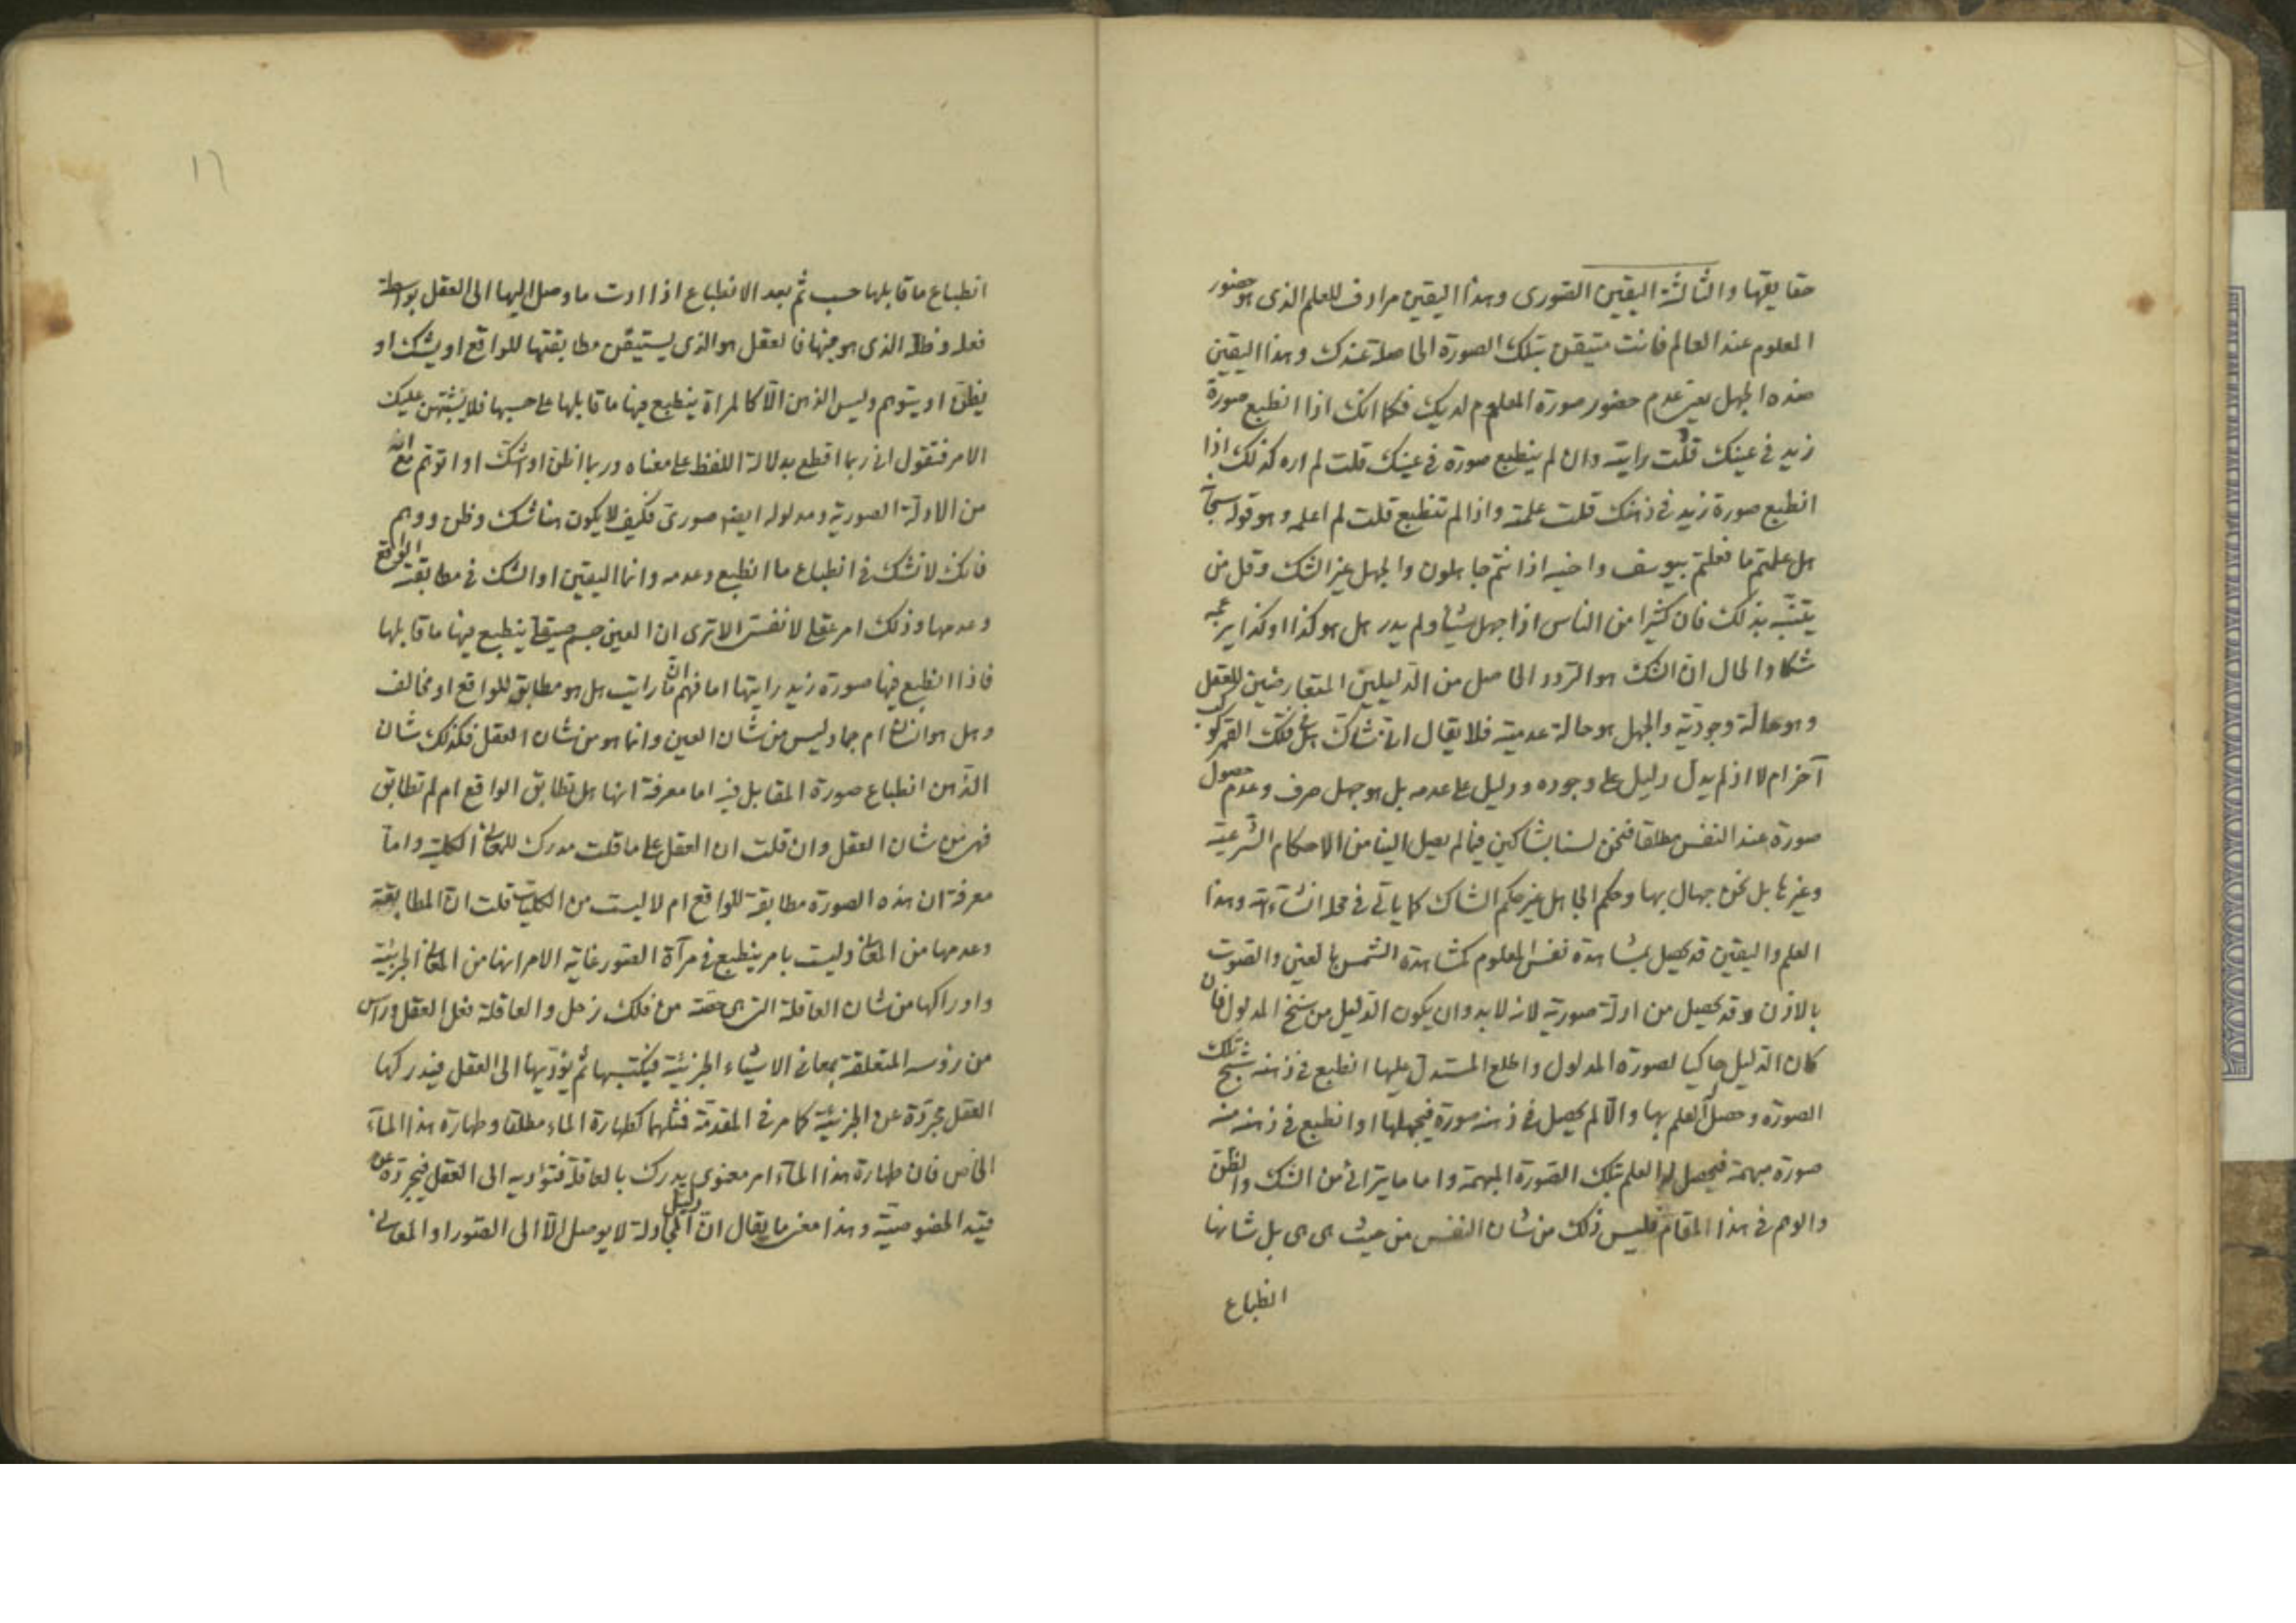 حقايقها والثالثة اليقين الصورى وهذا اليقين مرادف للعلم الذى هو حضور
المعلوم عند العالم فانت متيقن بتلك الصورة الحاصلة عندك وهذا اليقين
ضده الجهل يعنى عدم حضور صورة المعلوم لديك فكما انك اذا انطبع صورة
زيد فى عينك قلت رايته وان لم ينطبع صورة فى عينك قلت لم اره كذلك اذا
انطبع صورة زيد فى ذهنك قلت علمته واذا لم تنطبع قلت لم اعلمه وهو قوله سبحانه
هل علمتم ما فعلتم بيوسف واخيه اذ انتم جاهلون والجهل غير الشك وقل من
يتنبّه بذلك فان كثيرا من الناس اذا جهل شيئا ولم يدر هل هو كذا او كذا يزعمه
شكا والحال ان الشك هو التردد الحاصل من الدليلين المتعارضين للعقل
وهو حالة وجوديّة والجهل هو حالة عدمية فلا يقال انى شاك هل فى فلك القمر كوكب
آخر ام لا اذ لم يدل دليل على وجوده ودليل على عدمه بل هو جهل صرف وعدم حصول
صورة عند النفس مطلقا فنحن لسنا بشاكين فيما لم يصل الينا من الاحكام الشرعية
وغيرها بل نحن جهال بها وحكم الجاهل غير حكم الشاك كما ياتى فى محله انشاء الله وهذا
العلم واليقين قد يحصل بمشاهدة نفس المعلوم كمشاهدة الشمس بالعين والصوت
بالاذن وقد يحصل من ادلة صورية لانه لابد وان يكون الدليل من سنخ المدلول فان
كان الدليل حاكيا لصورة المدلول واطلع المستدل عليها انطبع فى ذهنه شبح تلك
الصورة وحصل العلم بها والّا لم يحصل فى ذهنه صورة فيجهلها او انطبع فى ذهنه منه
صورة مبهمة فيحصل له العلم بتلك الصورة المبهمة واما ما يترائى من الشك والظن
والوهم فى هذا المقام فليس ذلك من شان النفس من حيث هى هى بل شانها
انطباع
١٦
انطباع ما قابلها حسب ثم بعد الانطباع اذا ادت ما وصل اليها الى العقل بواسطة
فعله وظله الذى هو منها فالعقل هو الذى يستيقن مطابقتها للواقع او يشك او
يظنّ او يتوهم وليس الذهن الّا كالمراة ينطبع فيها ما قابلها على حسبها فلا يشتبهن عليك
الامر فتقول انى ربما اقطع بدلالة اللفظ على معناه وربما اظن او اشك او اتوهم مع انه
من الادلة الصورية ومدلوله ايضا صورى فكيف لا يكون هنا شك وظن ووهم
فانك لا تشك فى انطباع ما انطبع وعدمه وانما اليقين او الشك فى مطابقته الواقع
وعدمها وذلك امر عقلى لا نفسى الا ترى ان العين جسم صيقلى ينطبع فيها ما قابلها
فاذا انطبع فيها صورة زيد رايتها اما فهم ان ما رايت هل هو مطابق للواقع او مخالف
وهل هو انسان ام جماد ليس من شان العين وانما هو من شان العقل فكذلك شان
الذهن انطباع صورة المقابل فيه اما معرفة انها هل تطابق الواقع ام لم تطابق
فهى من شان العقل وان قلت ان العقل على ما قلت مدرك للمعانى الكلية واما
معرفة ان هذه الصورة مطابقة للواقع ام لا ليست من الكليات قلت ان المطابقة
وعدمها من المعانى وليست بامر ينطبع فى مرآة الصور غاية الامر انها من المعانى الجزئية
وادراكها من شان العاقلة التى هى حصّة من فلك زحل والعاقلة فعل العقل وراس
من رؤسه المتعلقة بمعانى الاشياء الجزئية فيكتسبها ثم يؤدّيها الى العقل فيدركها
العقل مجردة عن الجزئية كما مر فى المقدمة فمثلهما كطهارة الماء مطلقا وطهارة هذا الماء
الخاص فان طهارة هذا الماء امر معنوى يدرك بالعاقلة فتؤديه الى العقل فيجرده عن
قيد الخصوصية وهذا معنى ما يقال ان دليل المجادلة لا يوصل الّا الى الصور او المعانى